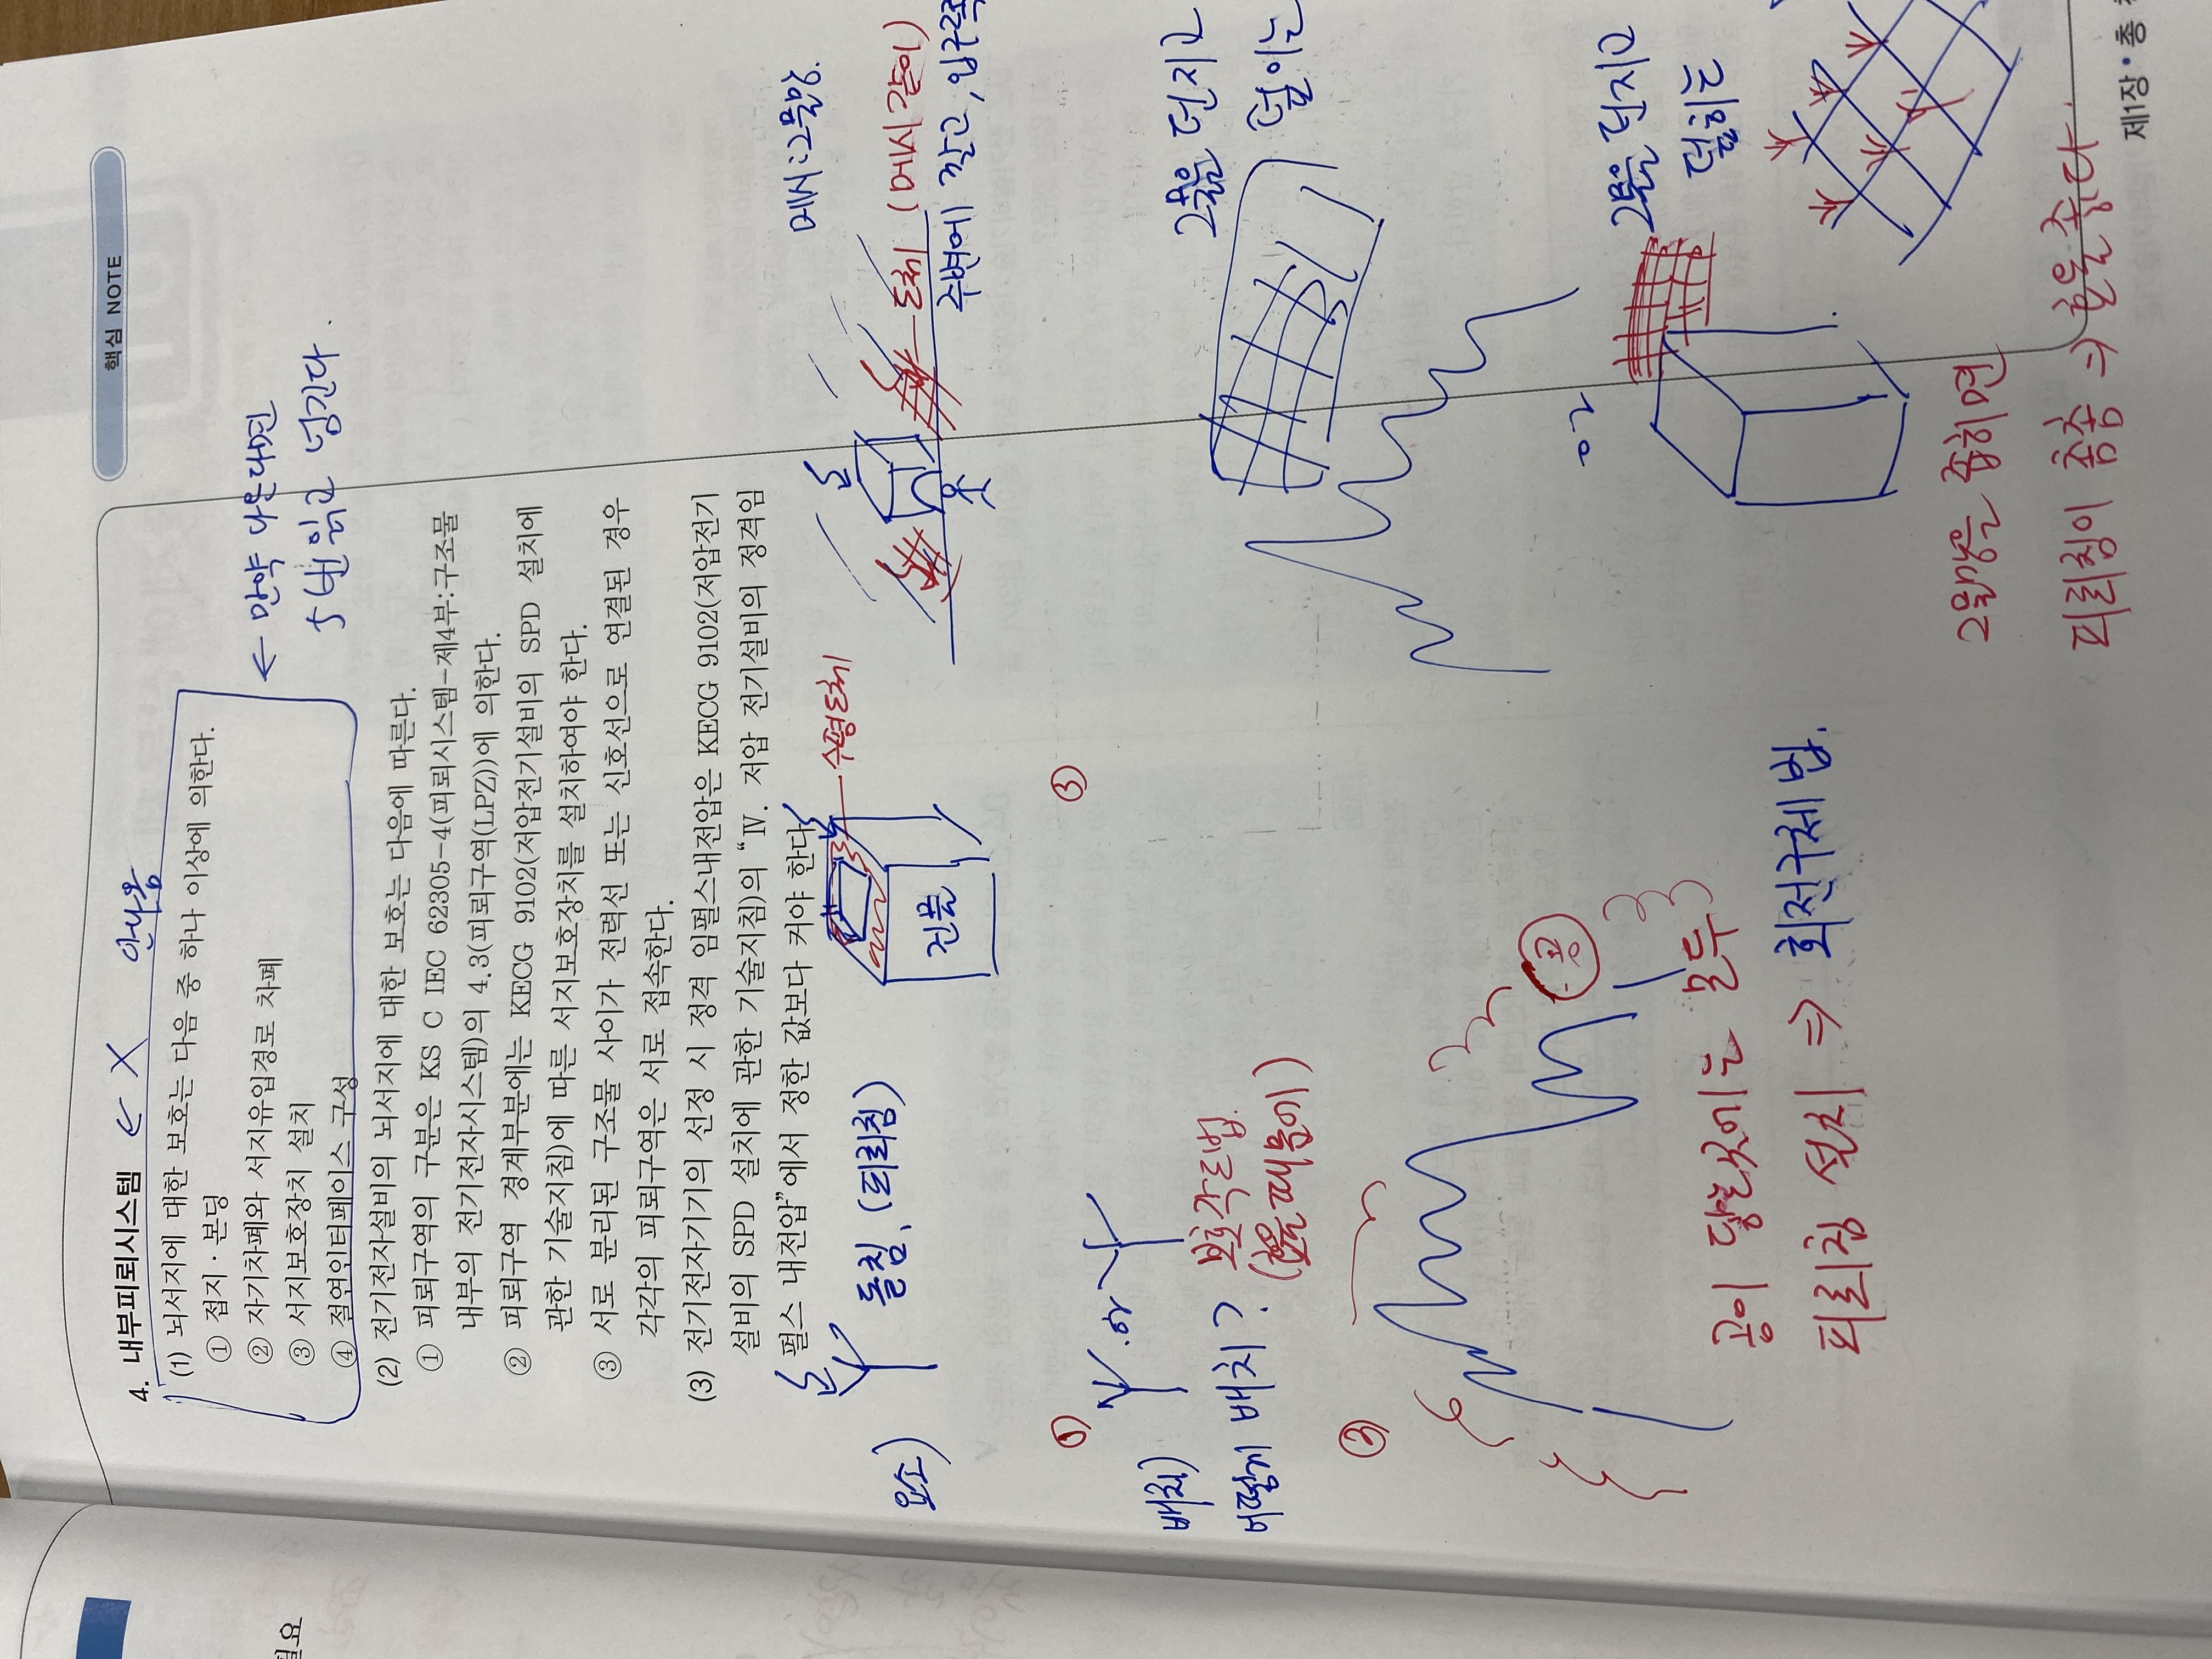 핵심 NOTE
4. 내부피뢰시스템 ← X 안나옴
(1) 뇌서지에 대한 보호는 다음 중 하나 이상에 의한다.
① 접지·본딩
② 자기차폐와 서지유입경로 차폐
③ 서지보호장치 설치
④ 절연인터페이스 구성
← 만약 나온다면
5번 읽고 넘긴다.
(2) 전기전자설비의 뇌서지에 대한 보호는 다음에 따른다.
① 피뢰구역의 구분은 KS C IEC 62305-4(피뢰시스템-제4부:구조물
내부의 전기전자시스템)의 4.3(피뢰구역(LPZ))에 의한다.
② 피뢰구역 경계부분에는 KECG 9102(저압전기설비의 SPD 설치에
관한 기술지침)에 따른 서지보호장치를 설치하여야 한다.
③ 서로 분리된 구조물 사이가 전력선 또는 신호선으로 연결된 경우
각각의 피뢰구역은 서로 접속한다.
(3) 전기전자기기의 선정 시 정격 임펄스내전압은 KECG 9102(저압전기
설비의 SPD 설치에 관한 기술지침)의 “Ⅳ. 저압 전기설비의 정격임
펄스 내전압”에서 정한 값보다 커야 한다.
요소)
돌침, (피뢰침)
건물
수평도체
메쉬:그물망.
도체 (메시같이)
주변에 깔고, 입구쪽
배치)
①
or
어떻게 배치?
보호각법.
②
공
공이 닿는것에는 모두
피뢰침 설치 ⇒ 회전구체법.
③
그물을 던지고
덮이는
or
그물을 던지고
덮히는
그물망은 좁히면
피뢰침이 촘촘 ⇒ 효율 좋다.
제1장·총
필요